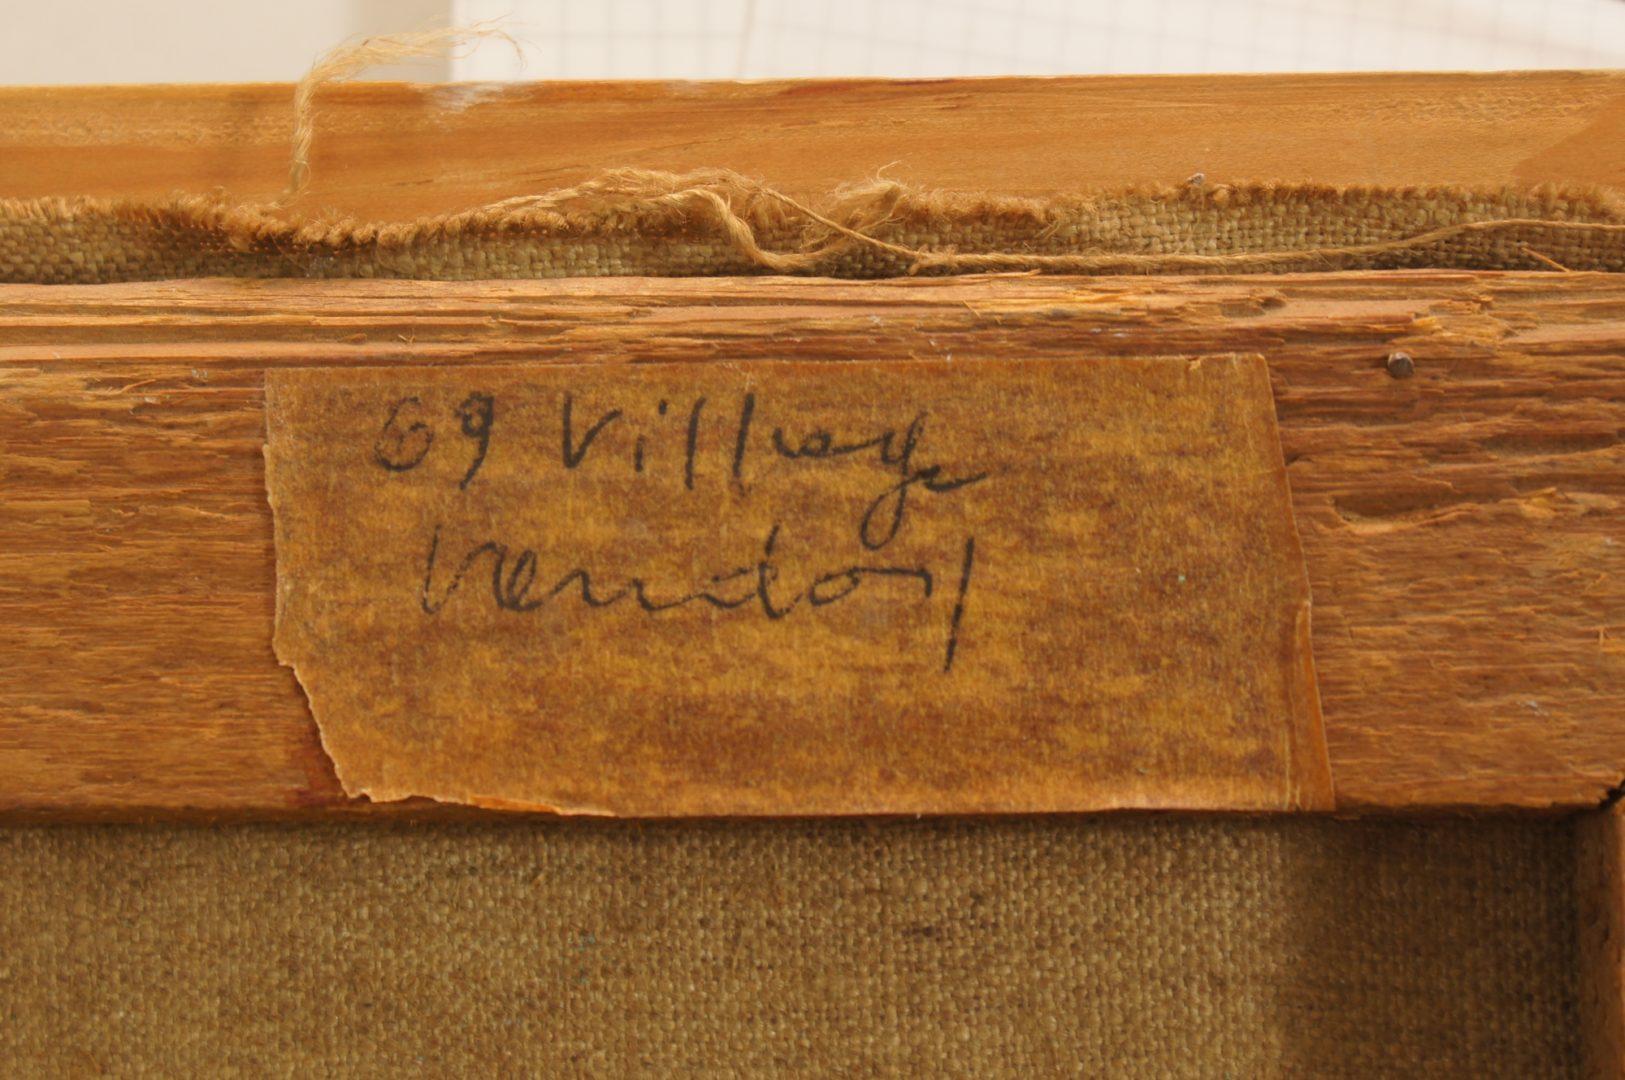 69 Village
Vendor